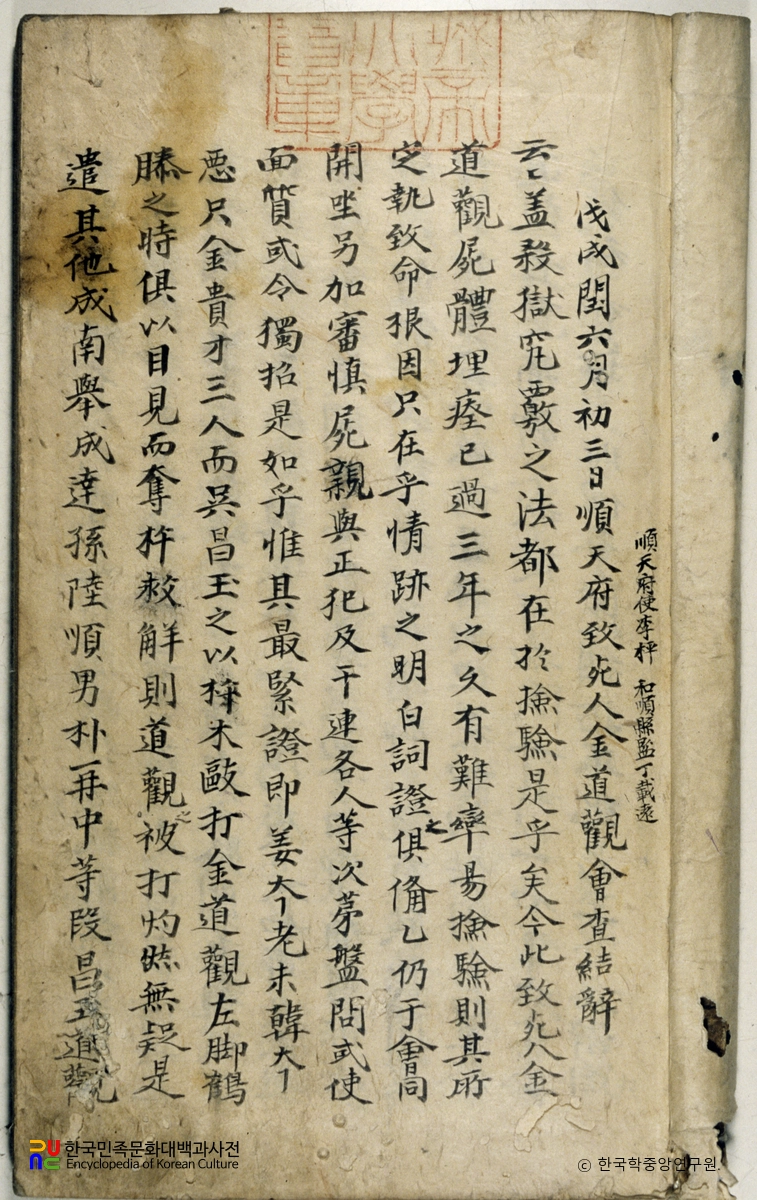 順天府使李枰 和順縣監丁載遠
戊戌閏六月初三日順天府致死人金道觀會査結辭
云云盖殺獄究覈之法都在於撿驗是乎矣今此致死人金
道觀屍體埋瘞已過三年之久有難率易撿驗則其所
定執致命根因只在乎情跡之明白詞證之俱備乙仍于會同
開坐另加審愼屍親與正犯及干連各人等次苐盤問或使
面質或令獨招是如乎惟其最緊證卽姜大丁老未韓大丁
惡只金貴才三人而吳昌玉之以 木歐打金道觀左脚鶴
膝之時俱以目見而奪杵救解則道觀之被打灼然無疑是
遣其他成南擧成達孫陸順男朴再中等段昌玉道觀
帝 學 章
한국민족문화대백과사전
Encyclopedia of Korean Culture
© 한국학중앙연구원